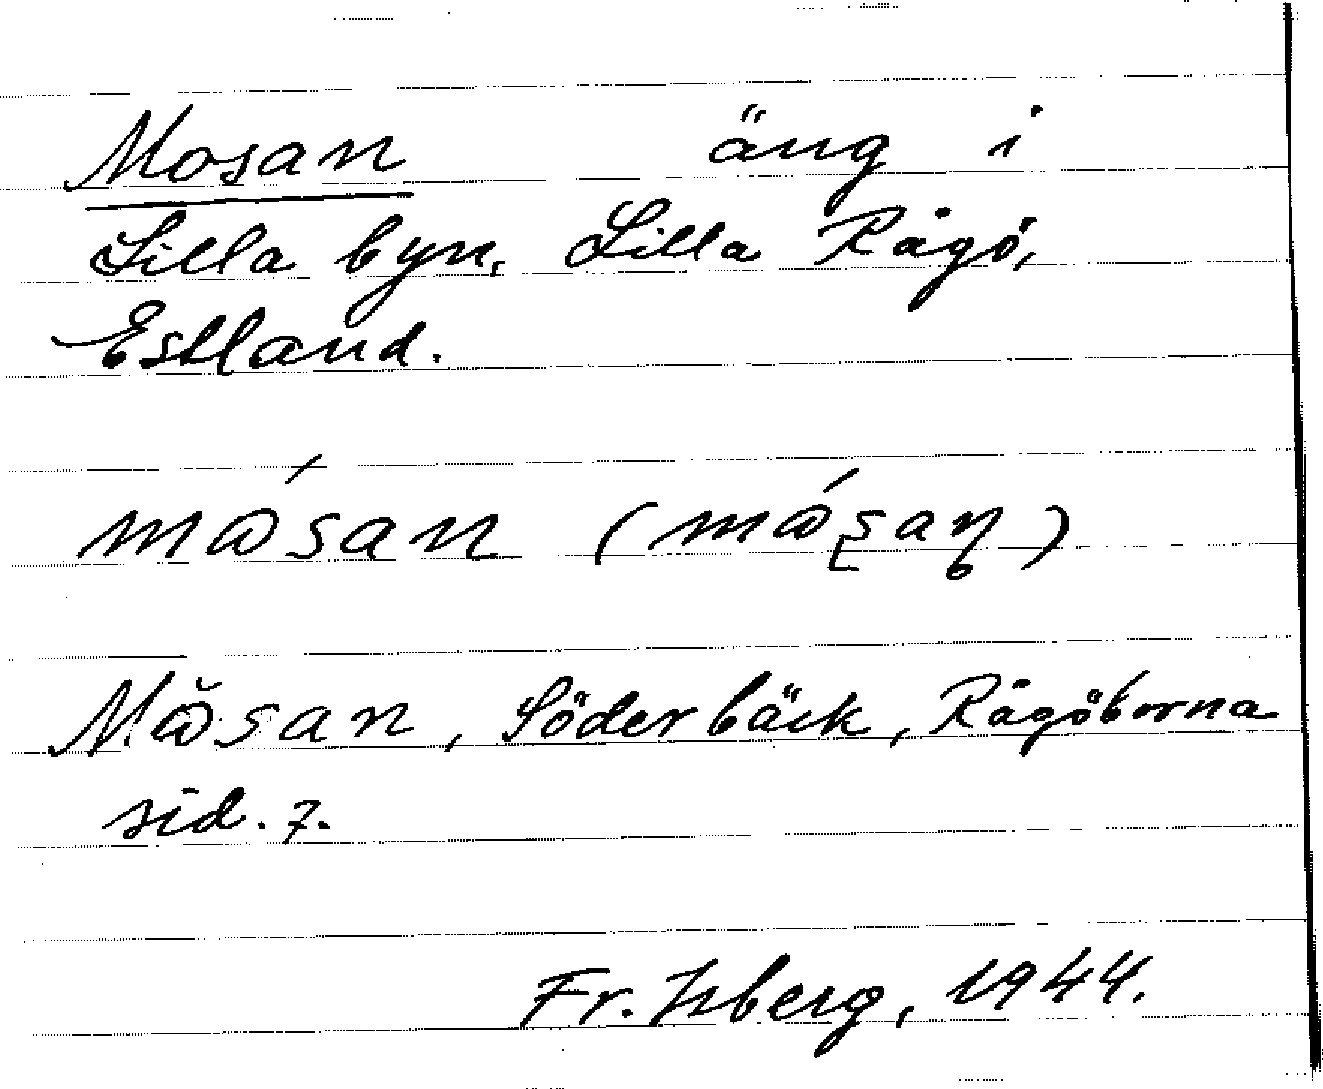 Mosan äng i
Lilla byn, Lilla Rågö,
Estland.
mɷ́san (mɷ́san)
Mɷ̆san, Söderbäck, Rågöborna
sid. 7.
Fr. Isberg, 1944.